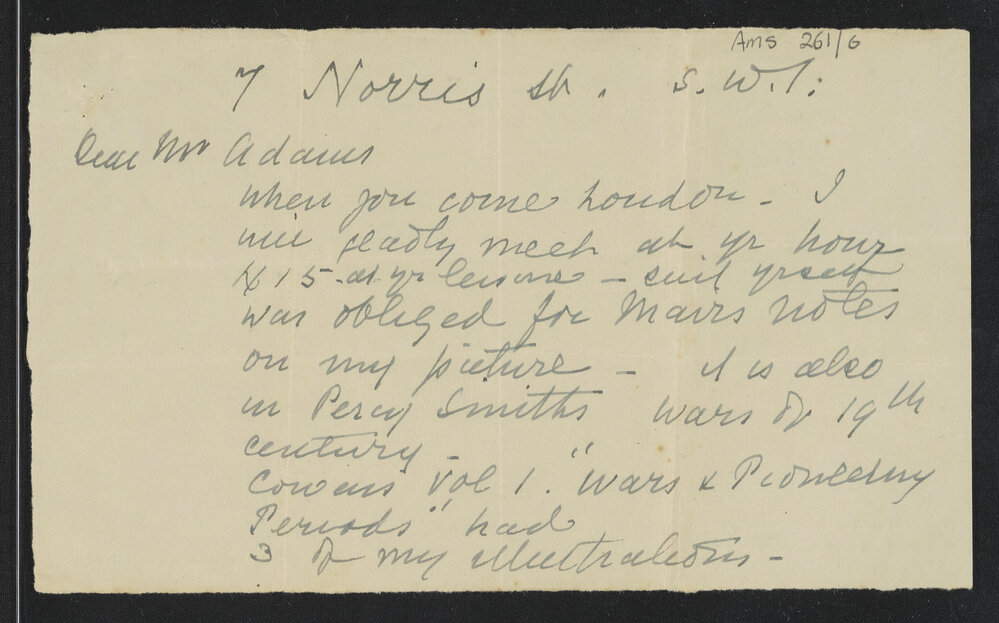 Ams 261/6
7 Norris St. S.W.1:
Dear Mr Adams
when you come London - I
will gladly meet at yr hour
& 15 - at yr leisure - suit yrself
was obliged for Mairs notes
on my picture - it is also
in Percy Smiths Wars of 19th
century -
Cowans Vol 1. "Wars & Pioneering
Periods" had
3 of my illustrations -